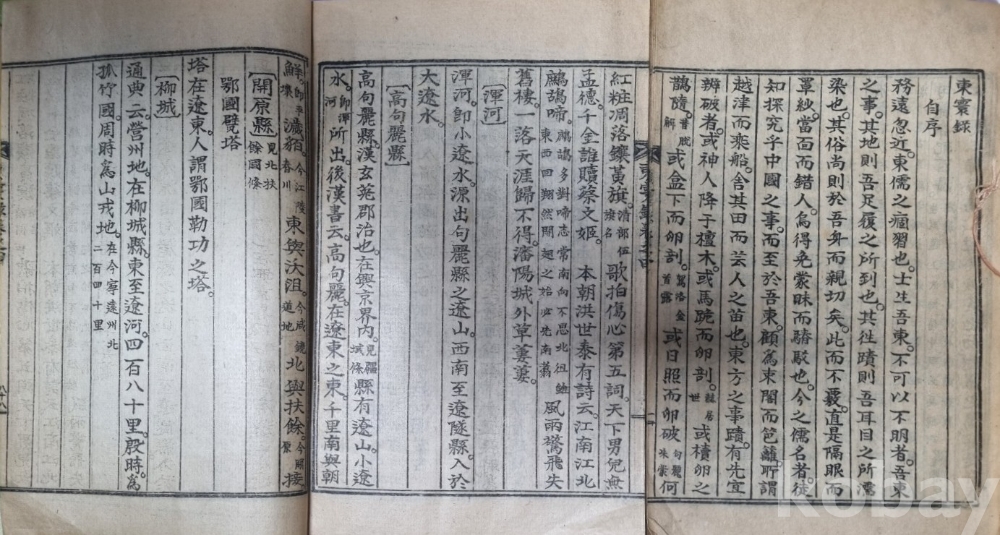 東寰錄
自序
務遠忽近。東儒之痼習也。士生吾東。不可以不明者。吾東
之事。其地則吾足履之所到也。其往蹟則吾耳目之所濡
染也。其俗尙則於吾身而親切矣。此而不覈。直是隔眼而
罩紗。當面而錯人。烏得免蒙昧而也。今之儒名者。徒
知探究乎中國之事。而至於吾東。顧爲束閣而笆籬。所謂
越津而乘船。舍其田而芸人之苗也。東方之事蹟。有先宜
辨破者。或神人降于檀木。或馬跪而卵剖。赫居世 或櫝卵之
鵲隨。昔脫解 或盒下而卵剖。駕洛金首露 或日照而卵破 句麗朱蒙 何
東寰錄卷之四
紅粧凋落鑲黃旗。淸部伍旗名 歌拍傷心第五詞。天下男兒無
孟德。千金誰贖蔡文姬。 本朝洪世泰有詩云。江南江北
鷓鴣啼。鷓鴣多對啼志常南向不思北徂雖東西回翔然開翅之始必先南翥 風雨驚飛失
舊棲。一落天涯歸不得。瀋陽城外草萋萋。
[渾河]
渾河。卽小遼水。源出句麗縣之遼山。西南至遼隊縣。入於
大遼水。
[高句麗縣]
高句麗縣。漢玄菟郡治也。在興京界內。見疆域條 縣有遼山。小遼
水。卽渾河 所出。後漢書云。高句麗。在遼東之東。千里南與朝
鮮。卽樂浪 濊貊 今江陵春川 東與沃沮。今咸鏡道地 北與扶餘。接
[開原縣] 見北扶餘國條
鄂國甓塔
塔在遼東。人謂鄂國勒功之塔。
[柳城]
通典云。營州地。在柳城縣。東至遼河。四百八十里。殷時。爲
孤竹國。周時。爲山戎地。在今寧遠州北二百四十里
kobay